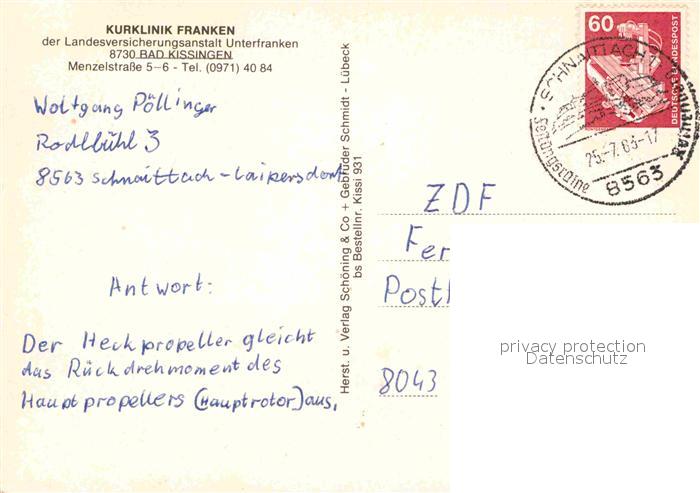 KURKLINIK FRANKEN
der Landesversicherungsanstalt Unterfranken
8730 BAD KISSINGEN
Menzelstraße 5-6 - Tel. (0971) 40 84
Wolfgang Pöllinger
Rodlbühl 3
8563 Schnaittach-Laipersdorf
Antwort:
Der Heckpropeller gleicht
das Rückdrehmoment des
Hauptpropellers (Hauptrotor) aus.
Herst. u. Verlag Schöning & Co + Gebrüder Schmidt - Lübeck
bs Bestellnr. Kissi 931
60
DEUTSCHE BUNDESPOST
SCHNAITTACH 1
25.-7.83-17
8563
ZDF
Fer
Post
8043
privacy protection
Datenschutz